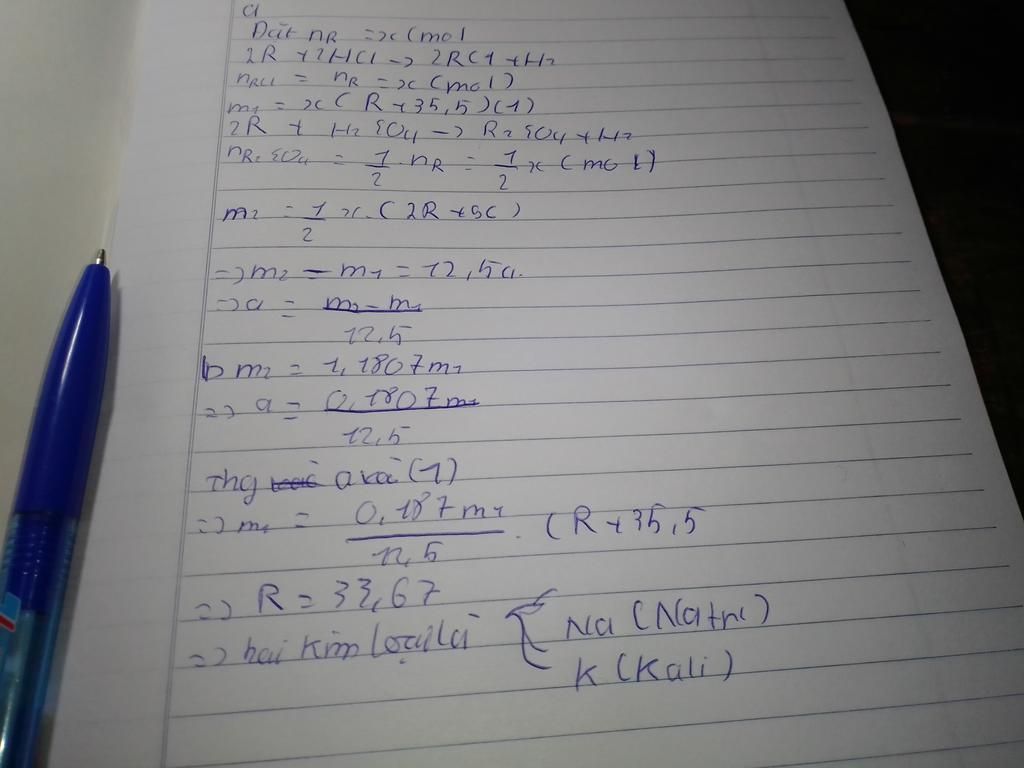 a
Đặt nR = x (mol
2R + 2HCl → 2RCl + H2
nRCl = nR = x (mol)
m1 = x ( R + 35,5 ) (1)
2R + H2SO4 → R2SO4 + H2
nR2SO4 = 1/2 nR = 1/2 x ( mol )
m2 = 1/2 x. ( 2R + 96 )
=> m2 - m1 = 12,5a.
=> a = m2 - m1 / 12,5
b m2 = 1,1807m1
=> a = 0,1807m1 / 12,5
Thg a và (1)
=> m1 = 0,187m1 / 12,5 . ( R + 35,5
=> R = 33,67
=> hai kim loại là { Na ( Natri )
K ( Kali )